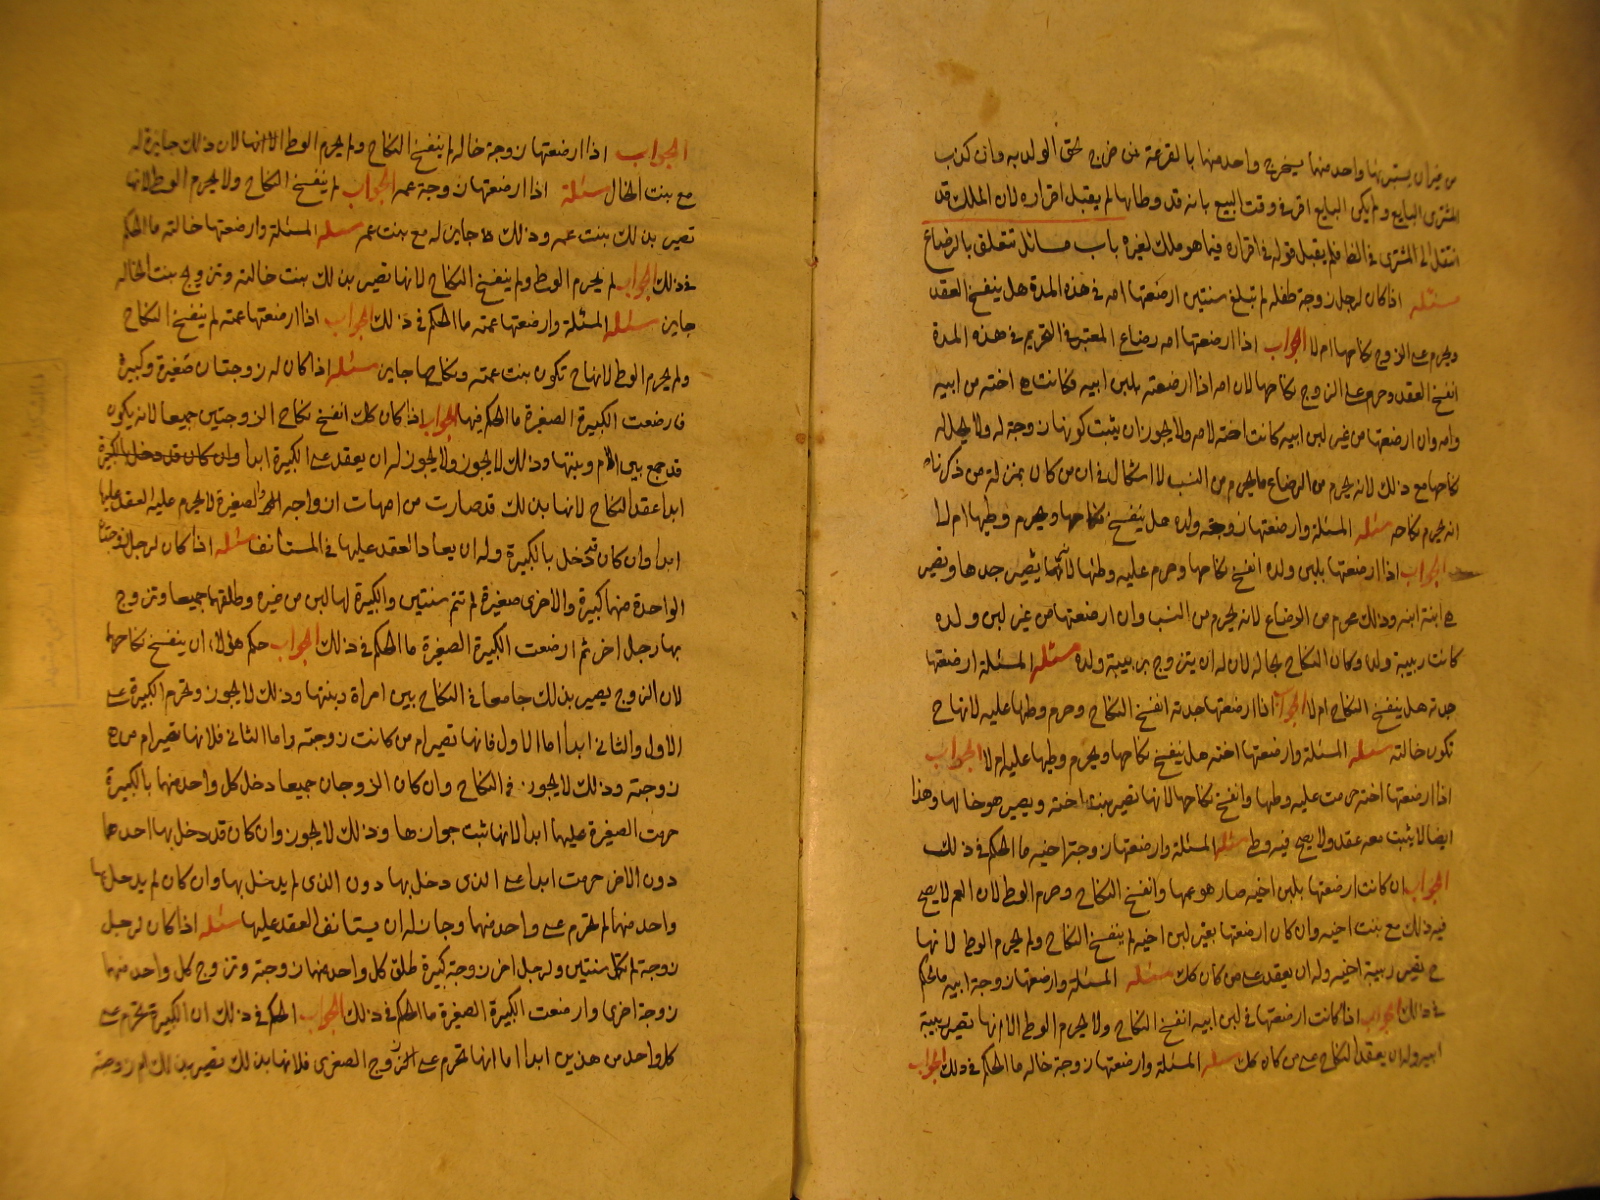 من غير ان يستبرئها واحد منهما يخرج واحد منهما بالقرعة من خرج لحق الولد به وان كذب
المشترى البايع ولم يكن البايع اقر في وقت البيع بانه قد وطاها لم يقبل اقراره لان الملك قد
انتقل الى المشترى في الظاهر فلم يقبل قوله في اقراره فيما هو ملك لغيره باب مسائل تتعلق بالرضاع
مسئله اذا كان لرجل زوجة طفله لم تبلغ سنتين ارضعتها امه في هذه المدة هل ينفسخ العقد
ويحرم على الزوج نكاحها ام لا الجواب اذا ارضعتها امه رضاع المعتبر في التحريم في هذه المدة
انفسخ العقد وحرم على الزوج نكاحها لان امه اذا ارضعته بلبن ابيه فكانت هى اخته من ابيه
وامه وان ارضعتها من غير لبن ابيه كانت اخته لامه ولا يجوز ان يثبت كونها زوجة له ولا يحل له
نكاحها مع ذلك لانه يحرم من الرضاع ما يحرم من النسب لا اشكال في ان من كان بمنزلة من ذكرناه
انه يحرم نكاحه مسئله المسئلة وارضعتها زوجة ولده هل ينفسخ نكاحها ويحرم وطيها ام لا
الجواب اذا ارضعتها بلبن ولده انفسخ نكاحها وحرم عليه وطئها لانه يصير جدها وتصير
هى ابنة ابنه وذلك محرم من الرضاع لانه يحرم من النسب وان ارضعتها من غير لبن ولده
كانت ربيبة ولده وكان النكاح بحاله لان له ان يتزوج بربيبة ولده مسئله المسئلة ارضعتها
جدته هل ينفسخ النكاح ام لا الجواب اذا ارضعتها جدته انفسخ النكاح وحرم وطئها عليه لانها ح
تكون خالته مسئله المسئلة وارضعتها اخته هل ينفسخ نكاحها ويحرم وطيها عليه ام لا الجواب
اذا ارضعتها اخته حرمت عليه وطئها وانفسخ نكاحها لانها تصير بنت اخته ويصير هو خالها وهذا
ايضا لا يثبت معه عقد ولا يصح فيه وطى مسئله المسئلة وارضعتها زوجة اخيه ما الحكم في ذلك
الجواب ان كانت ارضعتها بلبن اخيه صار هو عمها وانفسخ النكاح وحرم الوطى لان العم لا يصح
فيه ذلك مع بنت اخيه وان كان ارضعتها بغير لبن اخيه لم ينفسخ النكاح ولم يحرم الوطى لانها
ح تصير ربيبة اخيه وله ان يعقد على من كان كك مسئله المسئلة وارضعتها زوجة ابيه ما الحكم
في ذلك الجواب اذا كانت ارضعتها في لبن ابيه انفسخ النكاح ولا يحرم الوطى لانها تصير ربيبة
ابيه وله ان يعقد النكاح على من كان كك مسئله المسئلة وارضعتها زوجة خاله ما الحكم في ذلك الجواب
الجواب اذا ارضعتها زوجة خاله لم ينفسخ النكاح ولم يحرم الوطى لان ذلك جايز له
مع بنت الخال مسئلة اذا ارضعتها زوجة عمه الجواب لم ينفسخ النكاح ولا يحرم الوطى لانها
تصير بذلك بنت عمه وذلك جايز له مع بنت عمه مسئله المسئلة وارضعتها خالته ما الحكم
في ذلك الجواب لم يحرم الوطى ولم ينفسخ النكاح لانها تصير بذلك بنت خالته وتزويج بنت الخاله
جايز مسئله المسئلة وارضعتها عمته ما الحكم في ذلك الجواب اذا ارضعتها عمته لم ينفسخ النكاح
ولم يحرم الوطى لانها ح تكون بنت عمته ونكاحها جايز مسئله اذا كان له زوجتان صغيرة وكبيرة
فارضعت الكبيرة الصغيرة ما الحكم فيها الجواب اذا كان كك انفسخ نكاح الزوجتين جميعا لانه يكون
قد جمع بين الام وبنتها وذلك لا يجوز ولا يجوز له ان يعقد على الكبيرة ابدا وان كان قد دخل بالكبيرة
ابدا عقد النكاح لانها بذلك قد صارت من امهات ازواجه والصغيرة لا يحرم عليه العقد عليها
ابدا وان كان قد دخل بالكبيرة وله ان يعاد العقد عليها في المستأنف مسئله اذا كان لرجل زوجتان
الواحدة منهما كبيرة والاخرى صغيرة لم تتم سنتين والكبيرة لها لبن من غيره وطلقهما جميعا وتزوج
بها رجل اخر ثم ارضعت الكبيرة الصغيرة ما الحكم في ذلك الجواب حكم هؤلاء ان ينفسخ نكاحهما
لان الزوج يصير بذلك جامعا في النكاح بين امراة وبنتها وذلك لا يجوز وتحرم الكبيرة على
الاول والثانى ابدا اما الاول فانها تصير ام من كانت زوجته واما الثانى فلانها تصير ام من هى
زوجته وذلك لا يجوز في النكاح وان كان الزوجان جميعا دخل كل واحد منهما بالكبيرة
حرمت الصغيرة عليهما ابدا لانها بنت وذلك لا يجوز وان كان قد دخل بها احدهما
دون الاخر حرمت ابدا على الذى دخل بها دون الذى لم يدخل بها وان كان لم يدخل بها
واحد منهما لم تحرم على واحد منهما وجاز له ان يستانف العقد عليها مسئله اذا كان لرجل
زوجة لم تكمل سنتين ولرجل اخر زوجة كبيرة طلق كل واحد منهما زوجته وتزوج كل واحد منهما
زوجة اخرى وارضعت الكبيرة الصغيرة ما الحكم في ذلك الجواب الحكم في ذلك ان الكبيرة تحرم على
كل واحد من هذين ابدا اما انها تحرم على الزوج الصغرى فلانها بذلك تصير بذلك ام زوجته